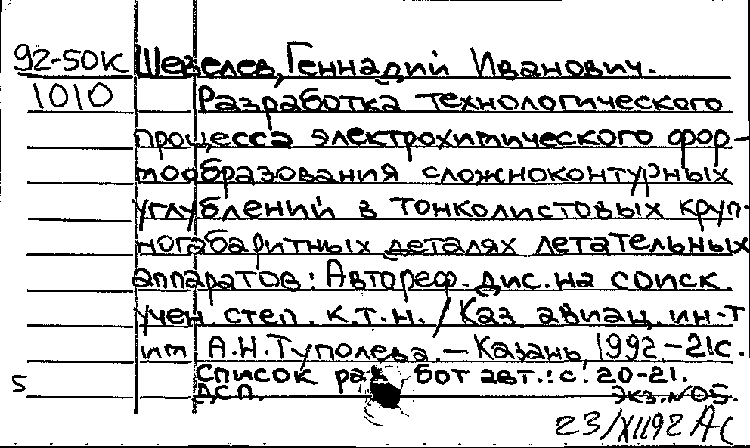 92-50К Шевелев, Геннадий Иванович.
1010 Разработка технологического
процесса электрохимического фор-
мообразования сложноконтурных
углублений в тонколистовых круп-
ногабаритных деталях летательных
аппаратов: Автореф. дис. на соиск.
учен. степ. к.т.н. / Каз. авиац. ин-т
им. А.Н.Туполева. – Казань, 1992 – 21с.
Список работ авт.: с. 20-21.
5 ДСП. Экз. №05.
23/XII92 АС